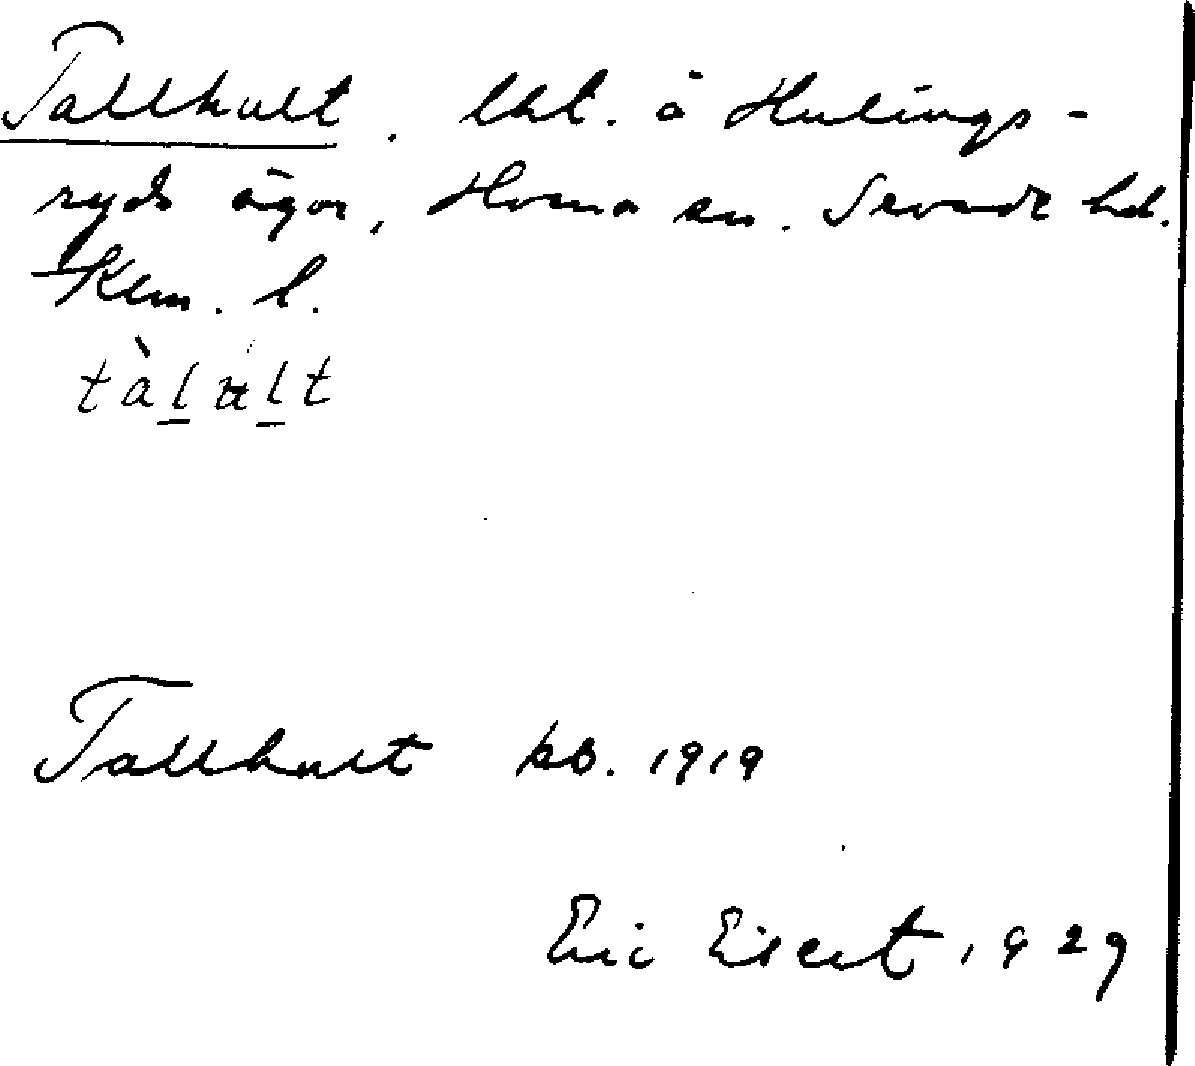 Tallhult. lht. å Hulings-
ryds ägor, Horna sn. Sevede hd.
Klm. l.
tàlult
Tallhult kb. 1919
Eric Elsert 1929